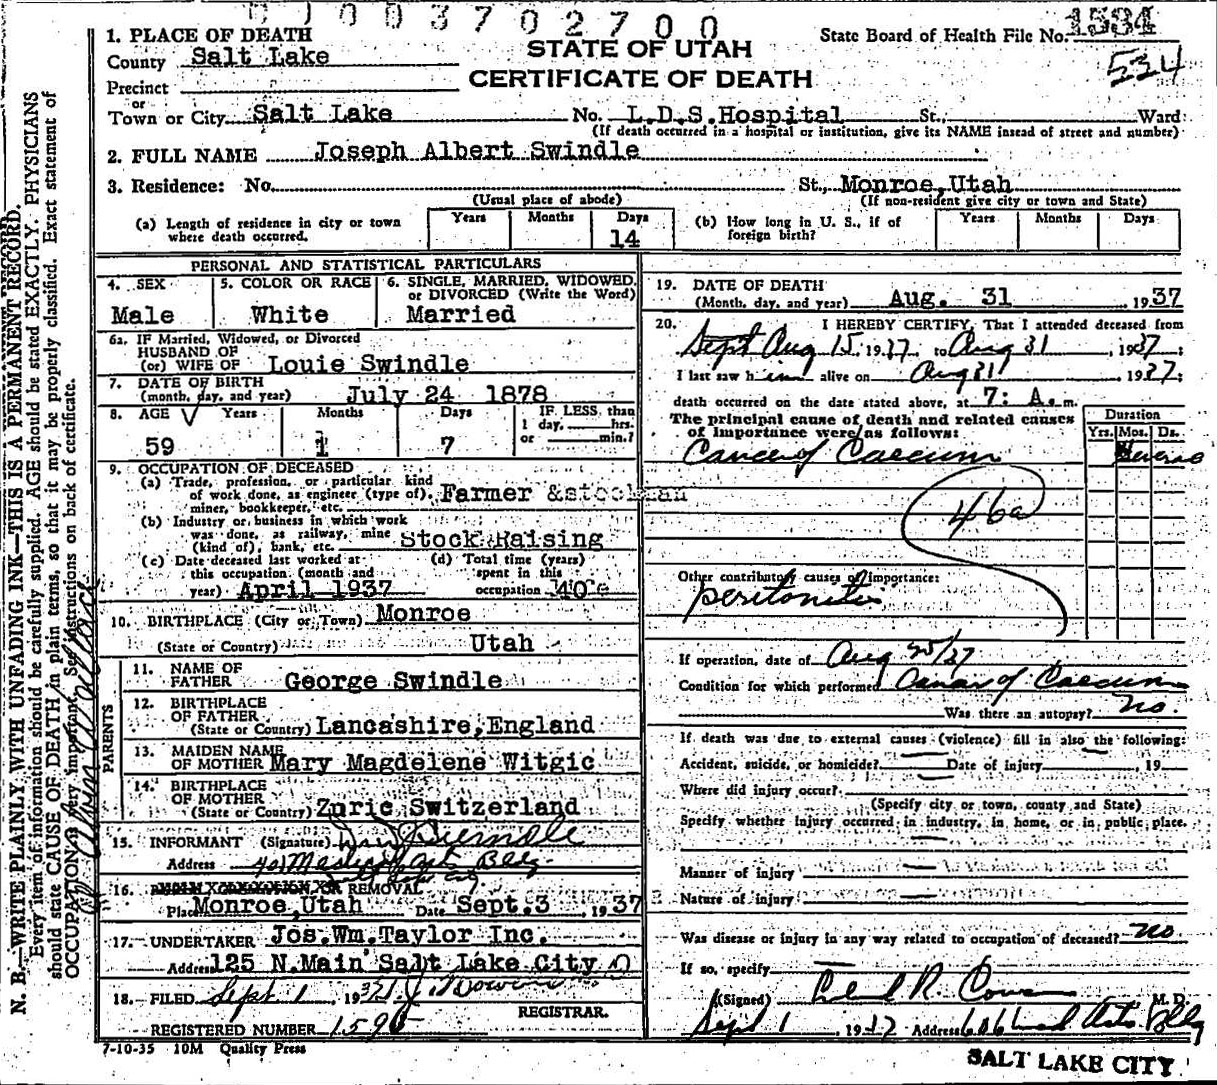 D J 0 0 3 7 0 2 7 0 0
1. PLACE OF DEATH
State Board of Health File No. 1534
County Salt Lake
STATE OF UTAH
534
Precinct
CERTIFICATE OF DEATH
or
Town or City Salt Lake No. L.D.S.Hospital St., Ward:
(If death occurred in a hospital or institution, give its NAME insead of street and number)
2. FULL NAME Joseph Albert Swindle
3. Residence: No. St., Monroe,Utah
(Usual place of abode) (If non-resident give city or town and State)
(a) Length of residence in city or town where death occurred. Years Months Days 14
(b) How long in U. S., if of foreign birth? Years Months Days
PERSONAL AND STATISTICAL PARTICULARS
4. SEX Male
5. COLOR OR RACE White
6. SINGLE, MARRIED, WIDOWED, or DIVORCED (Write the Word) Married
6a. IF Married, Widowed, or Divorced
HUSBAND OF
(or) WIFE OF Louie Swindle
7. DATE OF BIRTH
(month, day, and year) July 24 1878
8. AGE Years Months Days IF LESS than
1 day, hrs.
59 1 7 or min.?
9. OCCUPATION OF DECEASED
(a) Trade, profession, or particular kind
of work done, as engineer (type of), Farmer &stockman
miner, bookkeeper, etc.
(b) Industry or business in which work
was done, as railway, mine
(kind of), bank, etc. Stock Raising
(c) Date deceased last worked at
this occupation (month and
year) April 1937
(d) Total time (years)
spent in this
occupation 40
10. BIRTHPLACE (City or Town) Monroe
(State or Country) Utah
PARENTS
11. NAME OF
FATHER George Swindle
12. BIRTHPLACE
OF FATHER
(State or Country) Lancashire,England
13. MAIDEN NAME
OF MOTHER Mary Magdelene Witgic
14. BIRTHPLACE
OF MOTHER
(State or Country) Zuric Switzerland
15. INFORMANT (Signature)
Address 401 Bldg
16. OR REMOVAL
Place Monroe,Utah Date Sept.3 1937
17. UNDERTAKER Jos.Wm.Taylor Inc.
Address 125 N.Main Salt Lake City
18. FILED Sept 1, 193
REGISTRAR.
REGISTERED NUMBER
7-10-35 10M Quality Press
19. DATE OF DEATH
(Month, day, and year) Aug. 31 1937
20. I HEREBY CERTIFY, That I attended deceased from
Sept Aug 15, 1937 to Aug 31, 1937;
I last saw him alive on Aug 31 1937;
death occurred on the date stated above, at 7: A.m.
The principal cause of death and related causes
of importance were as follows:
Duration
Yrs. Mos. Ds.
Cancer of Caecum
46a
Other contributory causes of importance:
peritonitis
If operation, date of Aug 25/37
Condition for which performed Cancer of Caecum
Was there an autopsy? no.
If death was due to external causes (violence) fill in also the following:
Accident, suicide, or homicide? Date of injury , 19
Where did injury occur?
(Specify city or town, county and State)
Specify whether injury occurred in industry, in home, or in public place.
Manner of injury
Nature of injury
Was disease or injury in any way related to occupation of deceased? no
If so, specify
(Signed) R. M. D.
Sept 1, 1937 Address 606 Med Arts Bldg
SALT LAKE CITY
N. B.—WRITE PLAINLY, WITH UNFADING INK—THIS IS A PERMANENT RECORD.
Every item of information should be carefully supplied. AGE should be stated EXACTLY. PHYSICIANS
should state CAUSE OF DEATH in plain terms, so that it may be properly classified. Exact statement of
OCCUPATION is very important. See instructions on back of certificate.